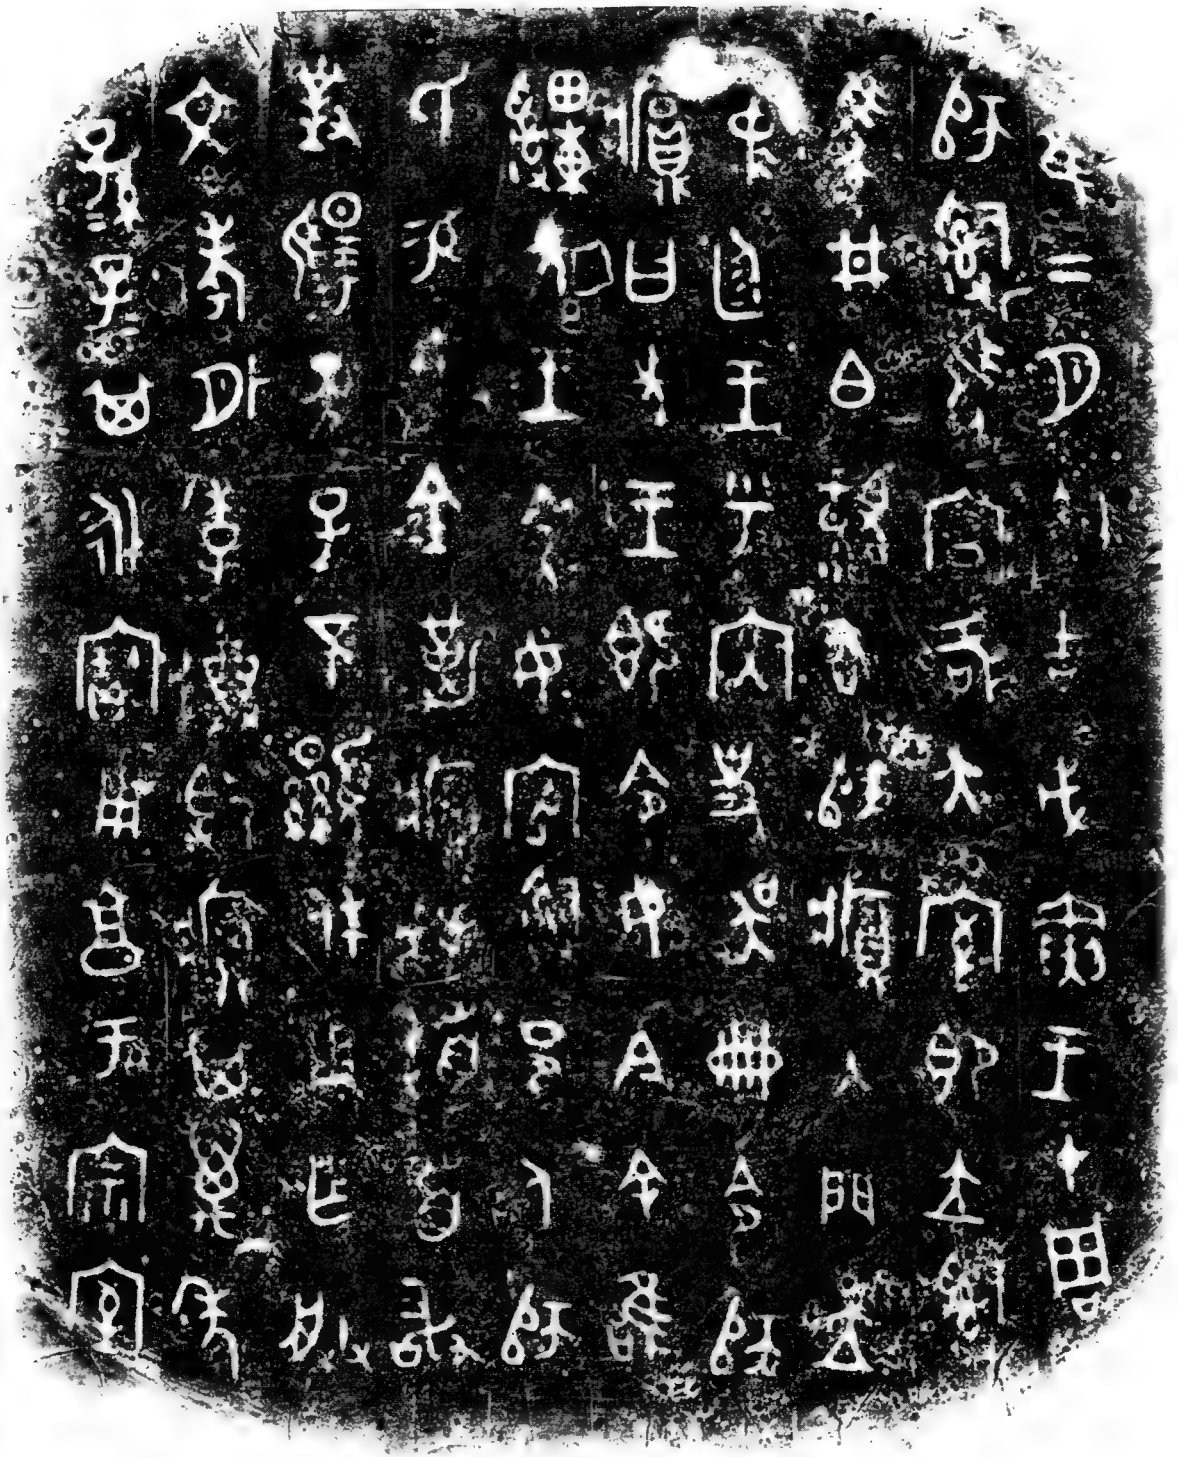 隹二月初吉戊寅王才周
師𤔲馬宮各大室即立𤔲
馬井白親右師𤸫入門立
中廷王乎内史吳冊令師
𤸫曰先王既令女今余唯
𤕌先王令女官𤔲邑人師
氏易女金勒𤸫拜𩒨首敢
對揚天子不顯休用乍朕
文考外季尊𣪘𤸫其萬年
孫=子=其永寶用享于宗室